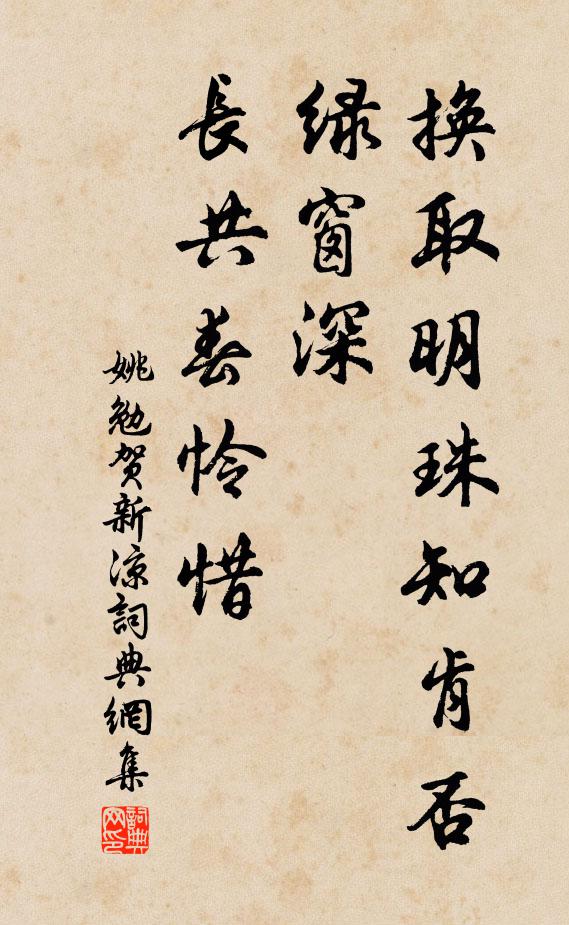 換取明珠知肯否
緑窗深
長共春怜惜
姚勉賀新涼詞典網集
詞典网印